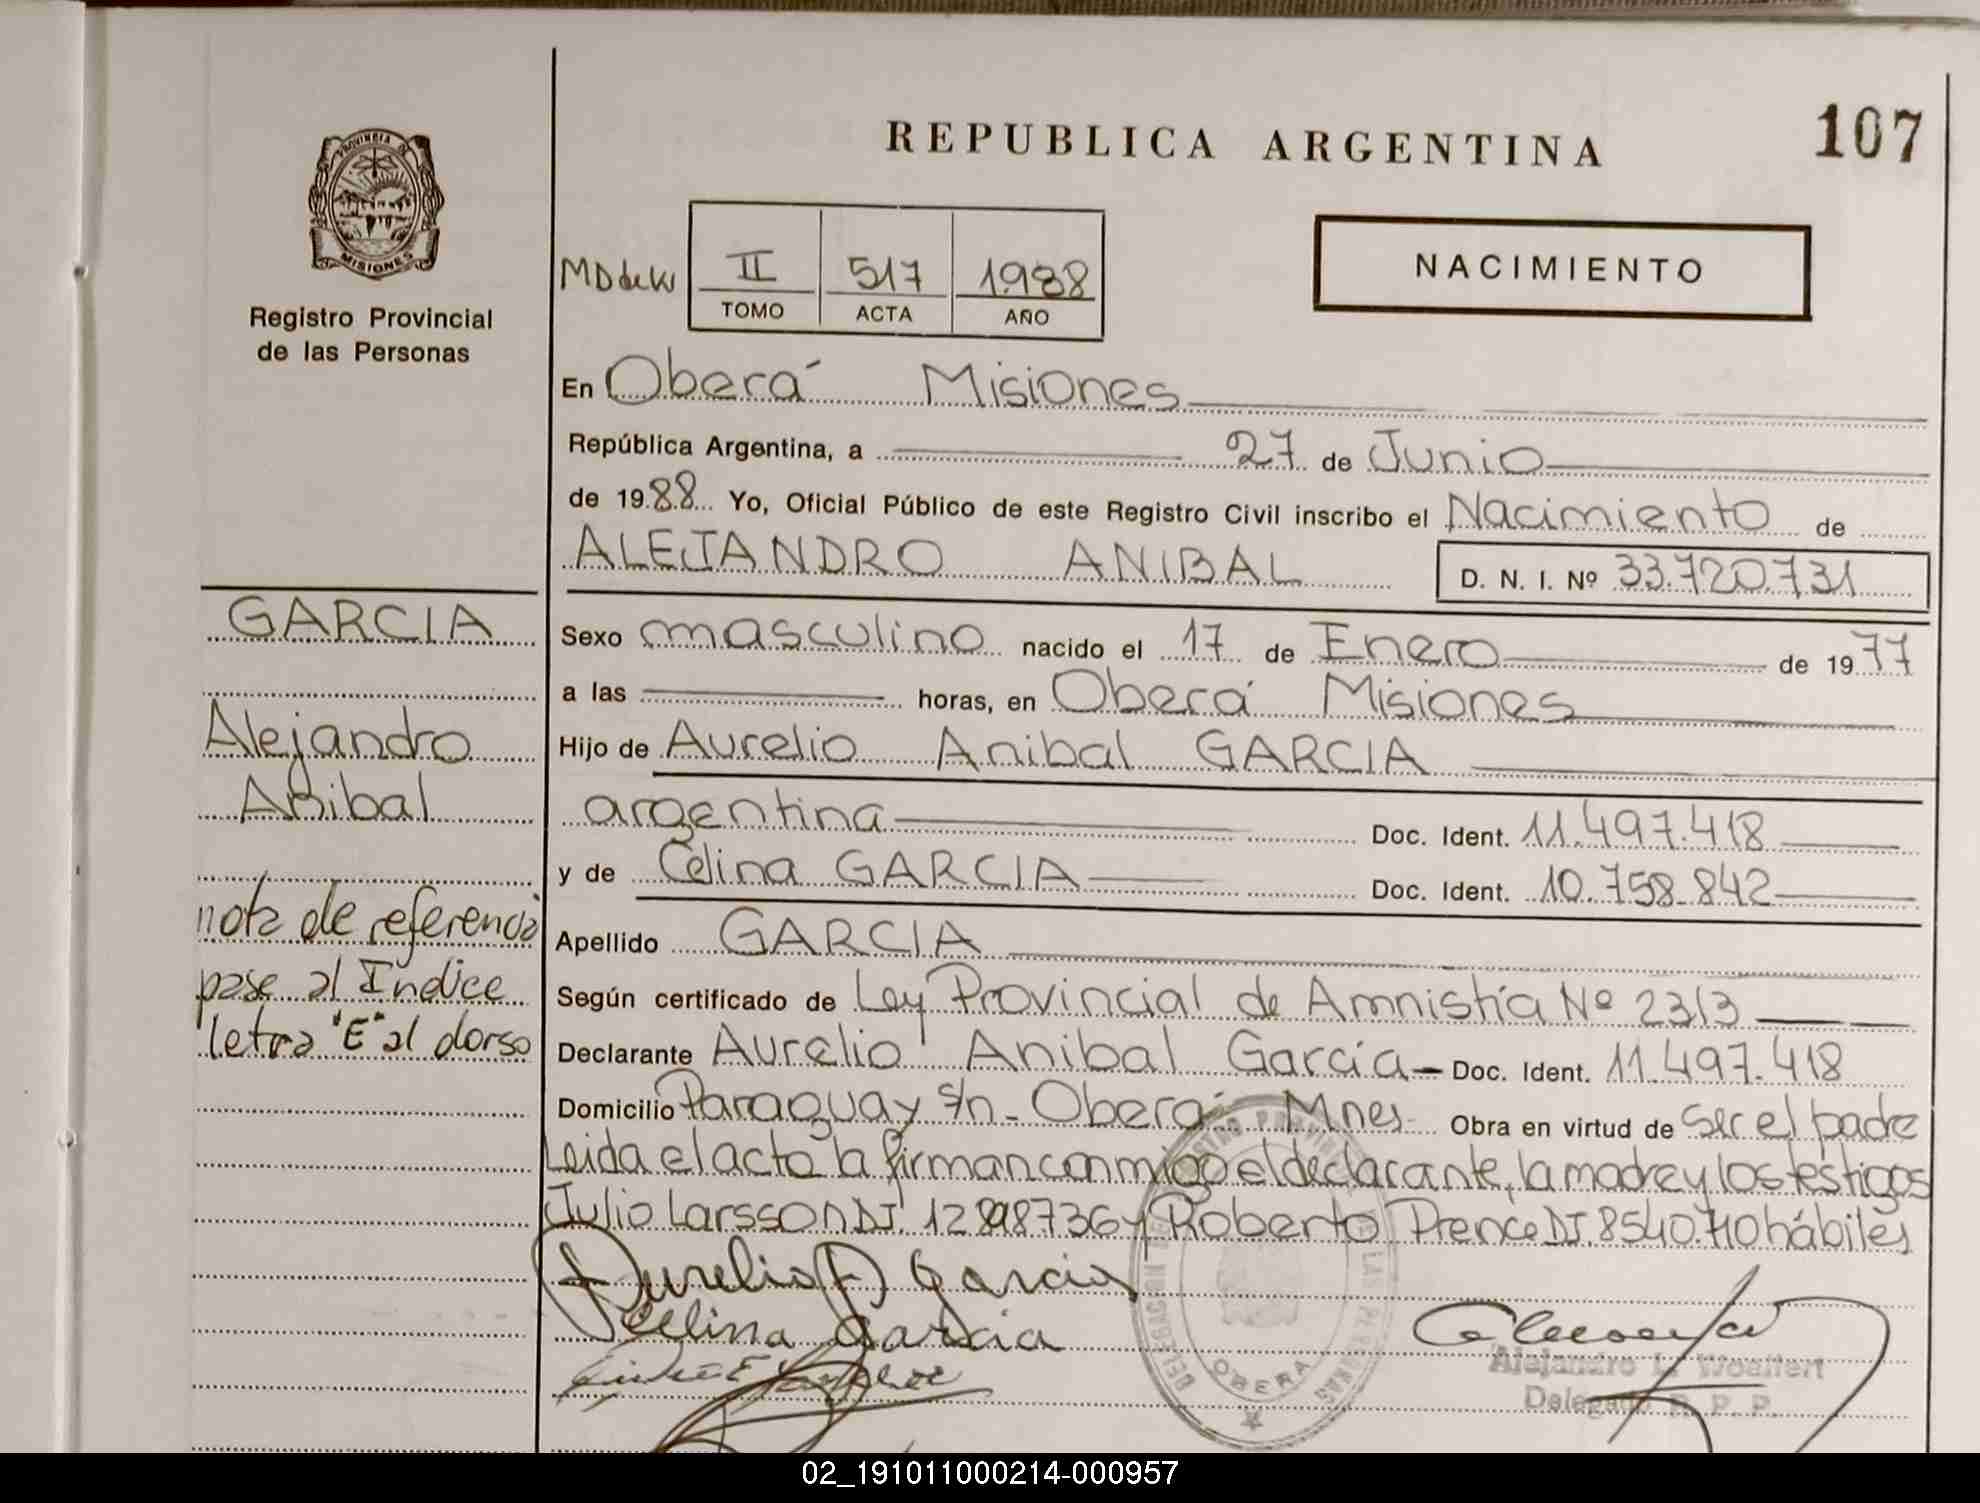 REPUBLICA ARGENTINA
107
PROVINCIA DE
MISIONES
Registro Provincial
de las Personas
II 517 1988
TOMO ACTA AÑO
NACIMIENTO
En Oberá Misiones
República Argentina, a 27 de Junio
de 1988 Yo, Oficial Público de este Registro Civil inscribo el Nacimiento de
ALEJANDRO ANIBAL D. N. I. Nº 33.720.731
GARCIA
Alejandro
Anibal
nota de referencia
pase al Indice
letra "E" al dorso
Sexo masculino nacido el 17 de Enero de 1977
a las horas, en Oberá Misiones
Hijo de Aurelio Anibal GARCIA
argentina Doc. Ident. 11.497.418
y de Celina GARCIA Doc. Ident. 10.758.842
Apellido GARCIA
Según certificado de Ley Provincial de Amnistía Nº 2313
Declarante Aurelio Anibal García - Doc. Ident. 11.497.418
Domicilio Paraguay s/n - Oberá - Mnes - Obra en virtud de ser el padre
Leida el acto la firman conmigo el declarante, la madre y los testigos
Julio Larsson DJ. y Roberto Prence DJ. 8540.710 hábiles
Aurelio A Garcia
Celina Garcia
DELEGACION REGISTRO PROVINCIAL DE LAS PERSONAS
OBERA
Alejandro L. Woelfert
Delegado R. P. P.
02_191011000214-000957